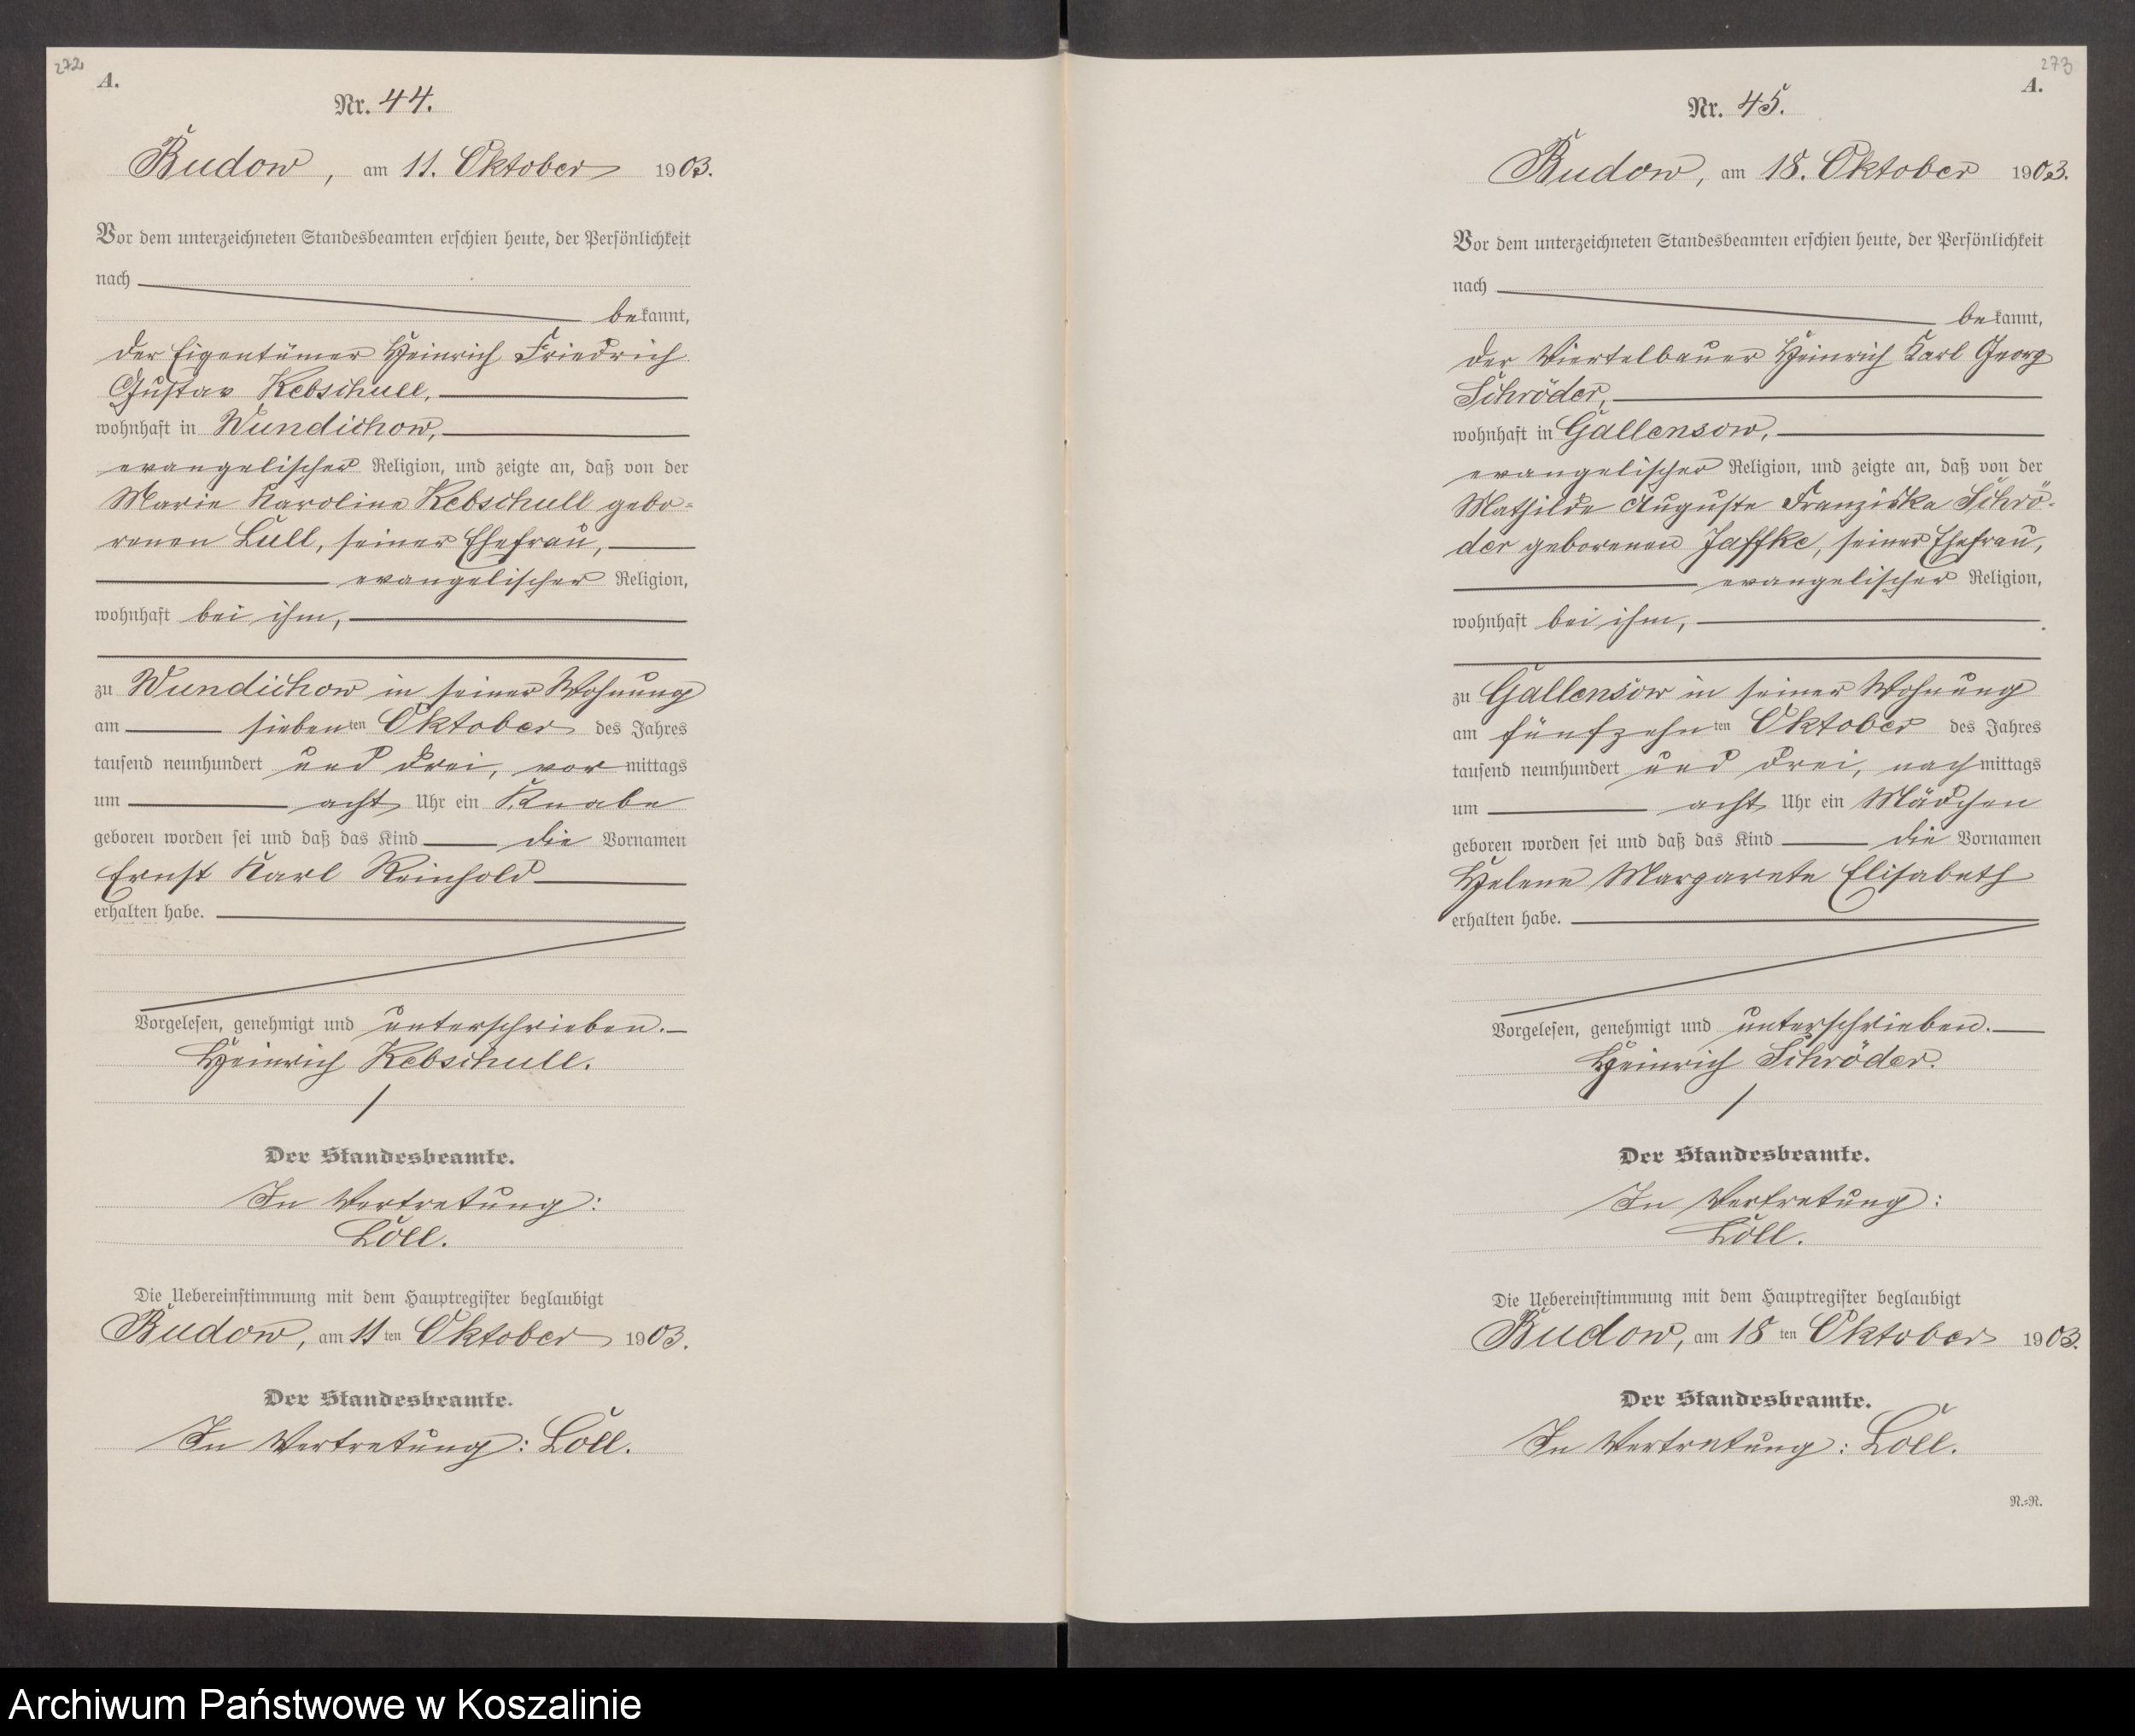 272
A.
Nr. 44.
Budow, am 11. Oktober 1903.
Vor dem unterzeichneten Standesbeamten erschien heute, der Persönlichkeit
nach
bekannt,
der Eigentümer Heinrich Friedrich
Gustav Kebschull,
wohnhaft in Wundichow,
evangelischer Religion, und zeigte an, daß von der
Marie Karoline Kebschull gebo=
renen Lull, seiner Ehefrau,
evangelischer Religion,
wohnhaft bei ihm,
zu Wundichow in seiner Wohnung
am siebenten Oktober des Jahres
tausend neunhundert und drei, vormittags
um acht Uhr ein Knabe
geboren worden sei und daß das Kind die Vornamen
Ernst Karl Reinhold
erhalten habe.
Vorgelesen, genehmigt und unterschrieben.
Heinrich Kebschull.
Der Standesbeamte.
In Vertretung:
Löll.
Die Uebereinstimmung mit dem Hauptregister beglaubigt
Budow, am 11ten Oktober 1903.
Der Standesbeamte.
In Vertretung: Löll.
273
A.
Nr. 45.
Budow, am 18. Oktober 1903.
Vor dem unterzeichneten Standesbeamten erschien heute, der Persönlichkeit
nach
bekannt,
der Viertelbauer Heinrich Karl Georg
Schröder,
wohnhaft in Gallensow,
evangelischer Religion, und zeigte an, daß von der
Mathilde Auguste Franziska Schrö-
der geborenen Jaffke, seiner Ehefrau,
evangelischer Religion,
wohnhaft bei ihm,
zu Gallensow in seiner Wohnung
am fünfzehnten Oktober des Jahres
tausend neunhundert und drei, nachmittags
um acht Uhr ein Mädchen
geboren worden sei und daß das Kind die Vornamen
Helene Margarete Elisabeth
erhalten habe.
Vorgelesen, genehmigt und unterschrieben.
Heinrich Schröder.
Der Standesbeamte.
In Vertretung:
Löll.
Die Uebereinstimmung mit dem Hauptregister beglaubigt
Budow, am 18ten Oktober 1903.
Der Standesbeamte.
In Vertretung: Löll.
N.=R.
Archiwum Państwowe w Koszalinie